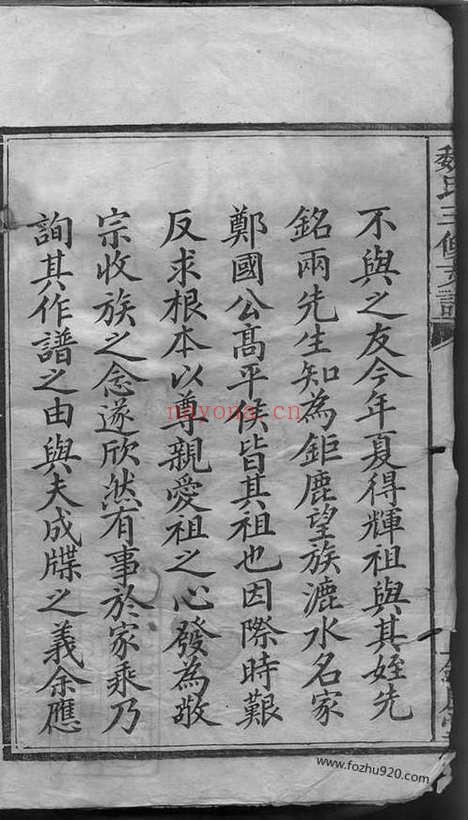 魏氏三修支譜
不與之友今年夏得輝祖與其姪先
銘兩先生知為鉅鹿望族漉水名家
鄭國公高平侯皆其祖也因際時艱
反求根本以尊親愛祖之心發為敬
宗收族之念遂欣然有事於家乘乃
詢其作譜之由與夫成牒之義余應
nayong.cn
www.fozhu920.com